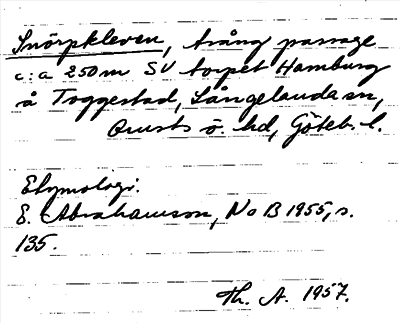 Snörpkleven, trång passage
c:a 250 m SV torpet Hamburg
å Toggestad, Långelanda sn,
Orusts ö. hd, Göteb. l.
Etymologi:
E. Abrahamson, No B 1955, s.
135.
Th. A. 1957.